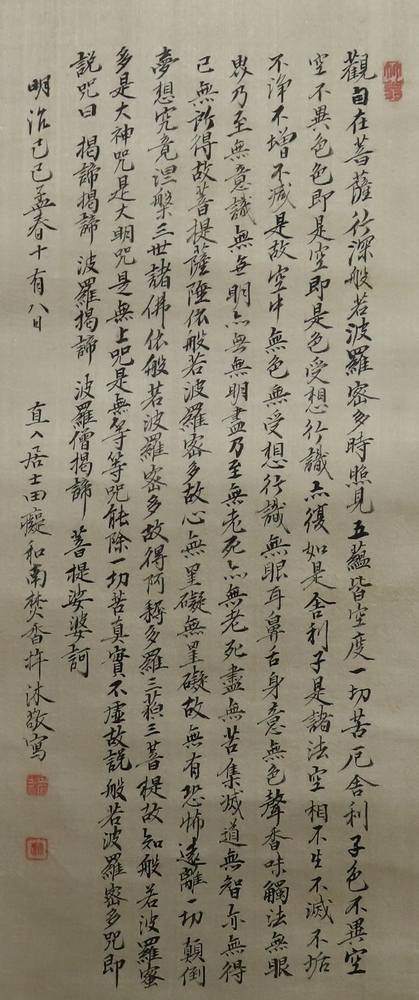 觀自在菩薩行深般若波羅密多時照見五蘊皆空度一切苦厄舍利子色不異空
空不異色色即是空即是色受想行識亦復如是舍利子是諸法空相不生不滅不垢
不淨不增不減是故空中無色無受想行識無眼耳鼻舌身意無色聲香味觸法無眼
界乃至無意識無無明亦無無明盡乃至無老死亦無老死盡無苦集滅道無智亦無得
已無所得故菩提薩埵依般若波羅密多故心無罣礙無罣礙故無有恐怖遠離一切顛倒
夢想究竟涅槃三世諸佛依般若波羅密多故得阿耨多羅三藐三菩提故知般若波羅蜜
多是大神咒是大明咒是無上咒是無等等咒能除一切苦真實不虛故説般若波羅密多咒即
説咒曰 揭諦揭諦 波羅揭諦 波羅僧揭諦 菩提娑婆訶
明治己巳孟春十有八日 直入居士田癡和南焚香拜沐敬寫